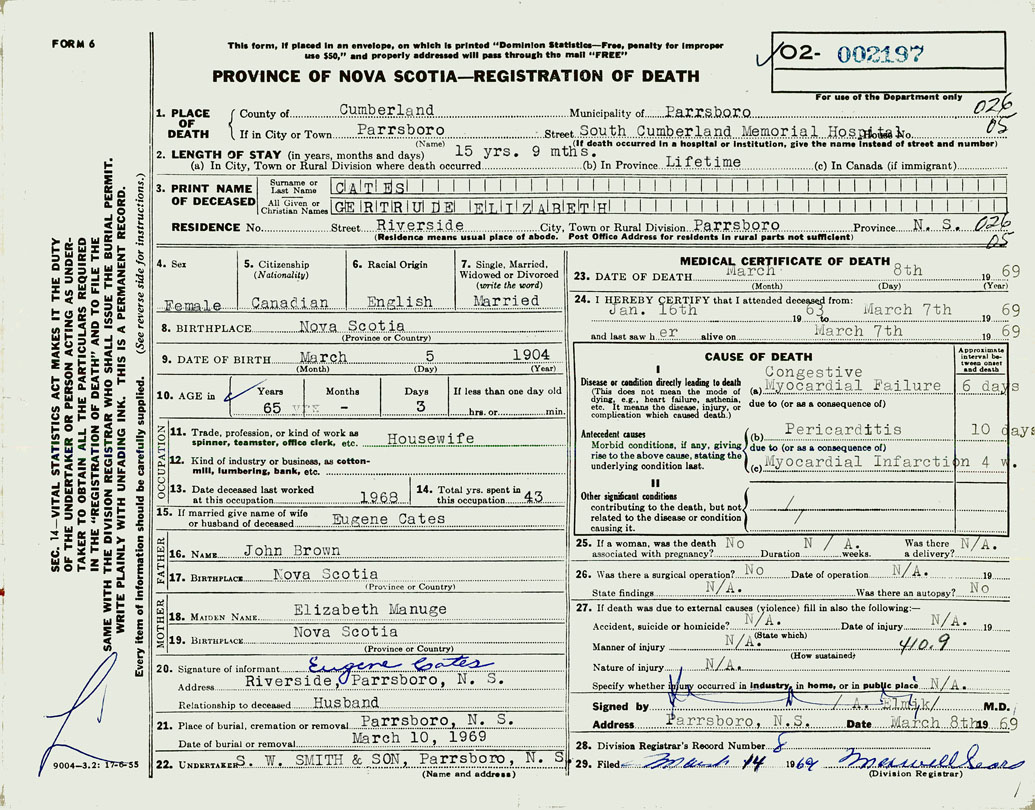 FORM 6
This form, if placed in an envelope, on which is printed "Dominion Statistics—Free, penalty for improper
use $50," and properly addressed will pass through the mail "FREE"
O2- 002197
For use of the Department only
PROVINCE OF NOVA SCOTIA—REGISTRATION OF DEATH
1. PLACE OF DEATH
County of Cumberland Municipality of Parrsboro 026
If in City or Town Parrsboro Street South Cumberland Memorial Hospital House No. 05
(Name) (If death occurred in a hospital or institution, give the name instead of street and number)
2. LENGTH OF STAY (in years, months and days) 15 yrs. 9 mths.
(a) In City, Town or Rural Division where death occurred (b) In Province Lifetime (c) In Canada (if immigrant)
3. PRINT NAME OF DECEASED
Surname or Last Name CATES
All Given or Christian Names GERTRUDE ELIZABETH
RESIDENCE No. Street Riverside City, Town or Rural Division Parrsboro Province N. S. 026
(Residence means usual place of abode. Post Office Address for residents in rural parts not sufficient) 05
4. Sex
Female
5. Citizenship
(Nationality)
Canadian
6. Racial Origin
English
7. Single, Married,
Widowed or Divorced
(write the word)
Married
8. BIRTHPLACE Nova Scotia
(Province or Country)
9. DATE OF BIRTH March 5 1904
(Month) (Day) (Year)
10. AGE in
Years Months Days If less than one day old
65 yrs - 3 hrs. or min.
OCCUPATION
11. Trade, profession, or kind of work as
spinner, teamster, office clerk, etc. Housewife
12. Kind of industry or business, as cotton-
mill, lumbering, bank, etc.
13. Date deceased last worked
at this occupation 1968
14. Total yrs. spent in
this occupation 43
15. If married give name of wife
or husband of deceased Eugene Cates
FATHER
16. NAME John Brown
17. BIRTHPLACE Nova Scotia
(Province or Country)
MOTHER
18. MAIDEN NAME Elizabeth Manuge
19. BIRTHPLACE Nova Scotia
(Province or Country)
20. Signature of informant Eugene Cates
Address Riverside, Parrsboro, N. S.
Relationship to deceased Husband
21. Place of burial, cremation or removal Parrsboro, N. S.
Date of burial or removal March 10, 1969
22. UNDERTAKER S. W. SMITH & SON, Parrsboro, N. S
(Name and address)
MEDICAL CERTIFICATE OF DEATH
23. DATE OF DEATH March 8th 1969
(Month) (Day) (Year)
24. I HEREBY CERTIFY that I attended deceased from:
Jan. 16th 1963 to March 7th 1969
and last saw her alive on March 7th 1969
CAUSE OF DEATH
Approximate
interval be-
tween onset
and death
I
Disease or condition directly leading to death
(This does not mean the mode of
dying, e.g., heart failure, asthenia,
etc. It means the disease, injury, or
complication which caused death.)
Congestive
(a) Myocardial Failure 6 days
due to (or as a consequence of)
Antecedent causes
Morbid conditions, if any, giving
rise to the above cause, stating the
underlying condition last.
(b) Pericarditis 10 days
due to (or as a consequence of)
(c) Myocardial Infarction 4 w.
II
Other significant conditions
contributing to the death, but not
related to the disease or condition
causing it.
25. If a woman, was the death No N / A. Was there N/A.
associated with pregnancy? Duration weeks. a delivery?
26. Was there a surgical operation? No Date of operation N/A. 19
State findings N/A. Was there an autopsy? No
27. If death was due to external causes (violence) fill in also the following:—
Accident, suicide or homicide? N/A. Date of injury N/A. 19
(State which)
Manner of injury N/A. 410.9
(How sustained)
Nature of injury N/A.
Specify whether injury occurred in industry, in home, or in public place N/A.
Signed by / A. Elmik/ M.D.
Address Parrsboro, N.S. Date March 8th 1969
28. Division Registrar's Record Number 8
29. Filed March 14 1969 Maxwell Sears
(Division Registrar)
SEC. 14—VITAL STATISTICS ACT MAKES IT THE DUTY
OF THE UNDERTAKER OR PERSON ACTING AS UNDER-
TAKER TO OBTAIN ALL THE PARTICULARS REQUIRED
IN THE "REGISTRATION OF DEATH" AND TO FILE THE
SAME WITH THE DIVISION REGISTRAR WHO SHALL ISSUE THE BURIAL PERMIT.
WRITE PLAINLY WITH UNFADING INK. THIS IS A PERMANENT RECORD.
Every item of information should be carefully supplied. (See reverse side for instructions.)
9004-3.2: 17-6-55